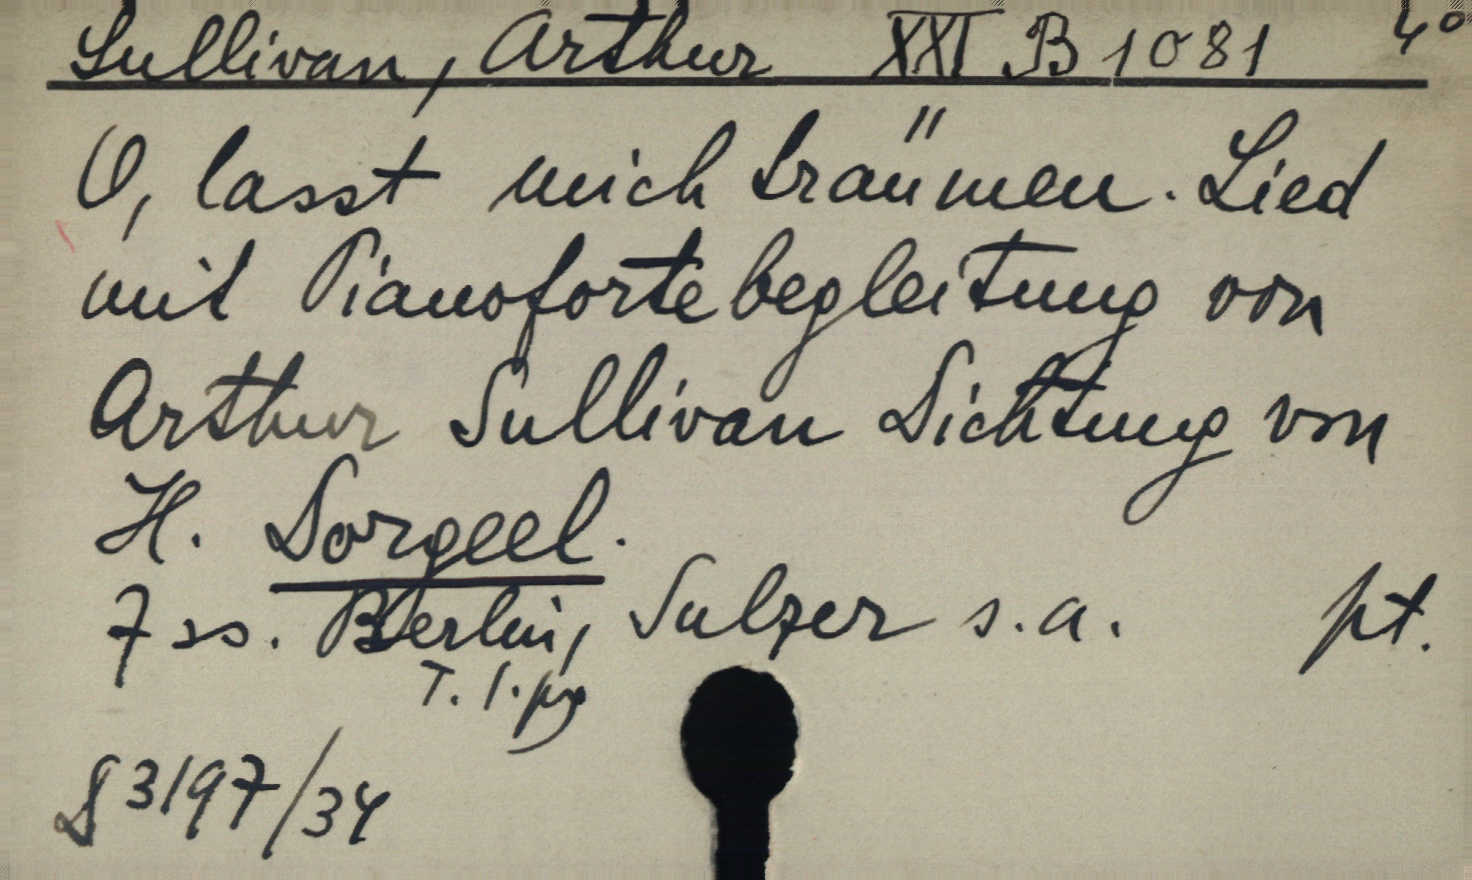 Sullivan, Arthur XXI B 1081 4°
O, lasst mich träumen. Lied
mit Pianofortebegleitung von
Arthur Sullivan Dichtung von
H. Dorgeel.
7 ss. Berlin, Sulzer s.a. pt.
T. I. pg
3197/34